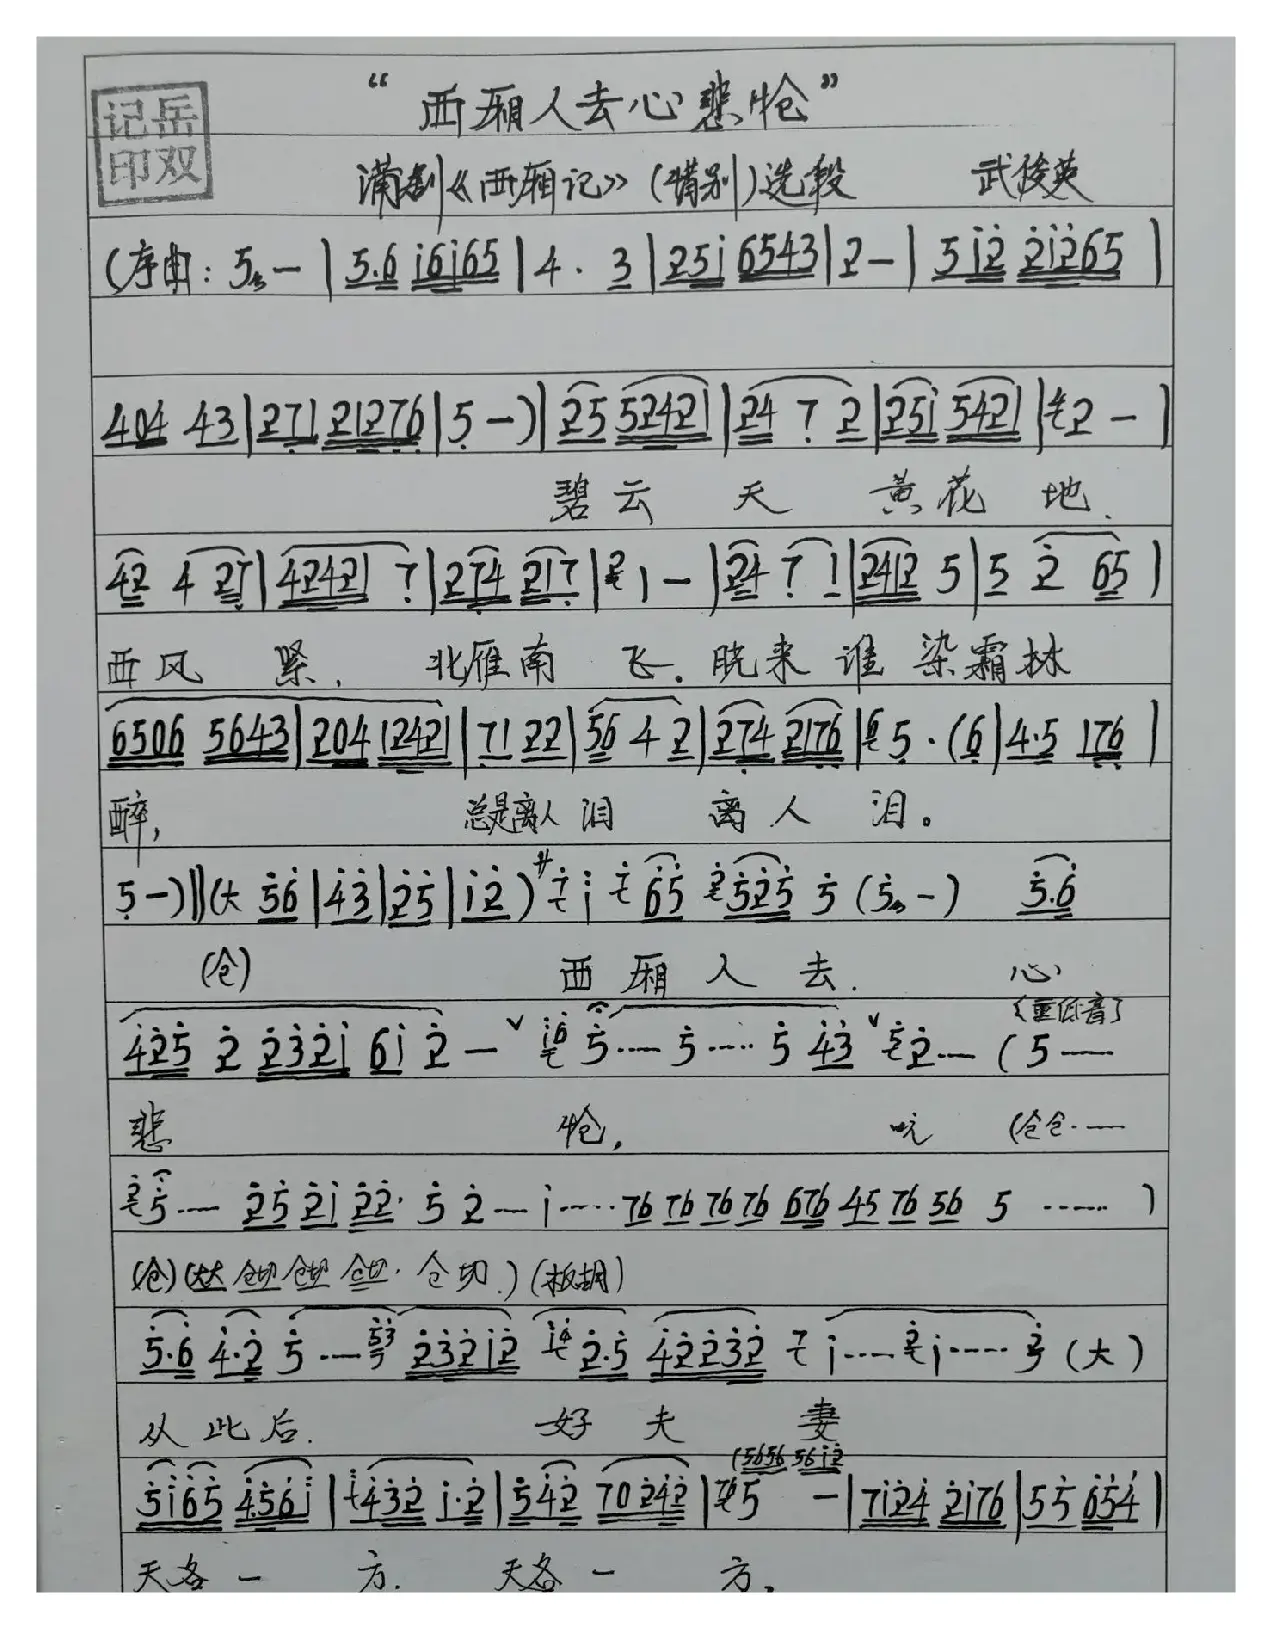 “西厢人去心悲怆”
记岳
印双
蒲剧《西厢记》(惜别)选段 武俊英
(序曲: 5 — | 5.6 i6i65 | 4 · 3 | 25i 6543 | 2 — | 5i2 2i265 |
404 43 | 271 21276 | 5 —) | 25 52421 | 24 7 2 | 25i 5421 | 4 2 — |
碧云 天 黄花 地.
42 4 27 | 42421 7 | 274 217 | 2 1 — | 24 7 1 | 2412 5 | 5 2 65 |
西风 紧, 北雁南 飞. 晓来 谁 染霜林
6506 5643 | 204 12421 | 71 22 | 56 4 2 | 274 2176 | 6 5 · (6 | 4·5 176 |
醉, 总是离人 泪 离人 泪。
5 —) ‖ (大 56 | 43 | 25 | i2 ) サ 7 i 7 65 2 525 5 (5 —) 5.6
(仓) 西厢人去. 心
(重低音)
425 2 232i 6i 2 — ∨ i6 5 ····· 5 ····· 5 43 ∨ 5 2 ···· ( 5 ·····
悲 怆, 吭 (仓仓·····
2 5 ···· 25 2i 22· 5 2 ···· i ····· 76 76 76 76 676 45 76 56 5 ······ )
(仓) (大大 仓切 仓切 仓切· 仓切.) (板胡)
5·6 4·2 5 ···· 53 232i2 i4 2·5 42232 7 i ····· 2 i ····· 3 (大)
从此后. 好夫妻
(5656 56i2
5i65 456i | i 432 i·2 | 542 70242 | 76 5 — | 7i24 2i76 | 55 654 |
天各一 方. 天各一 方.